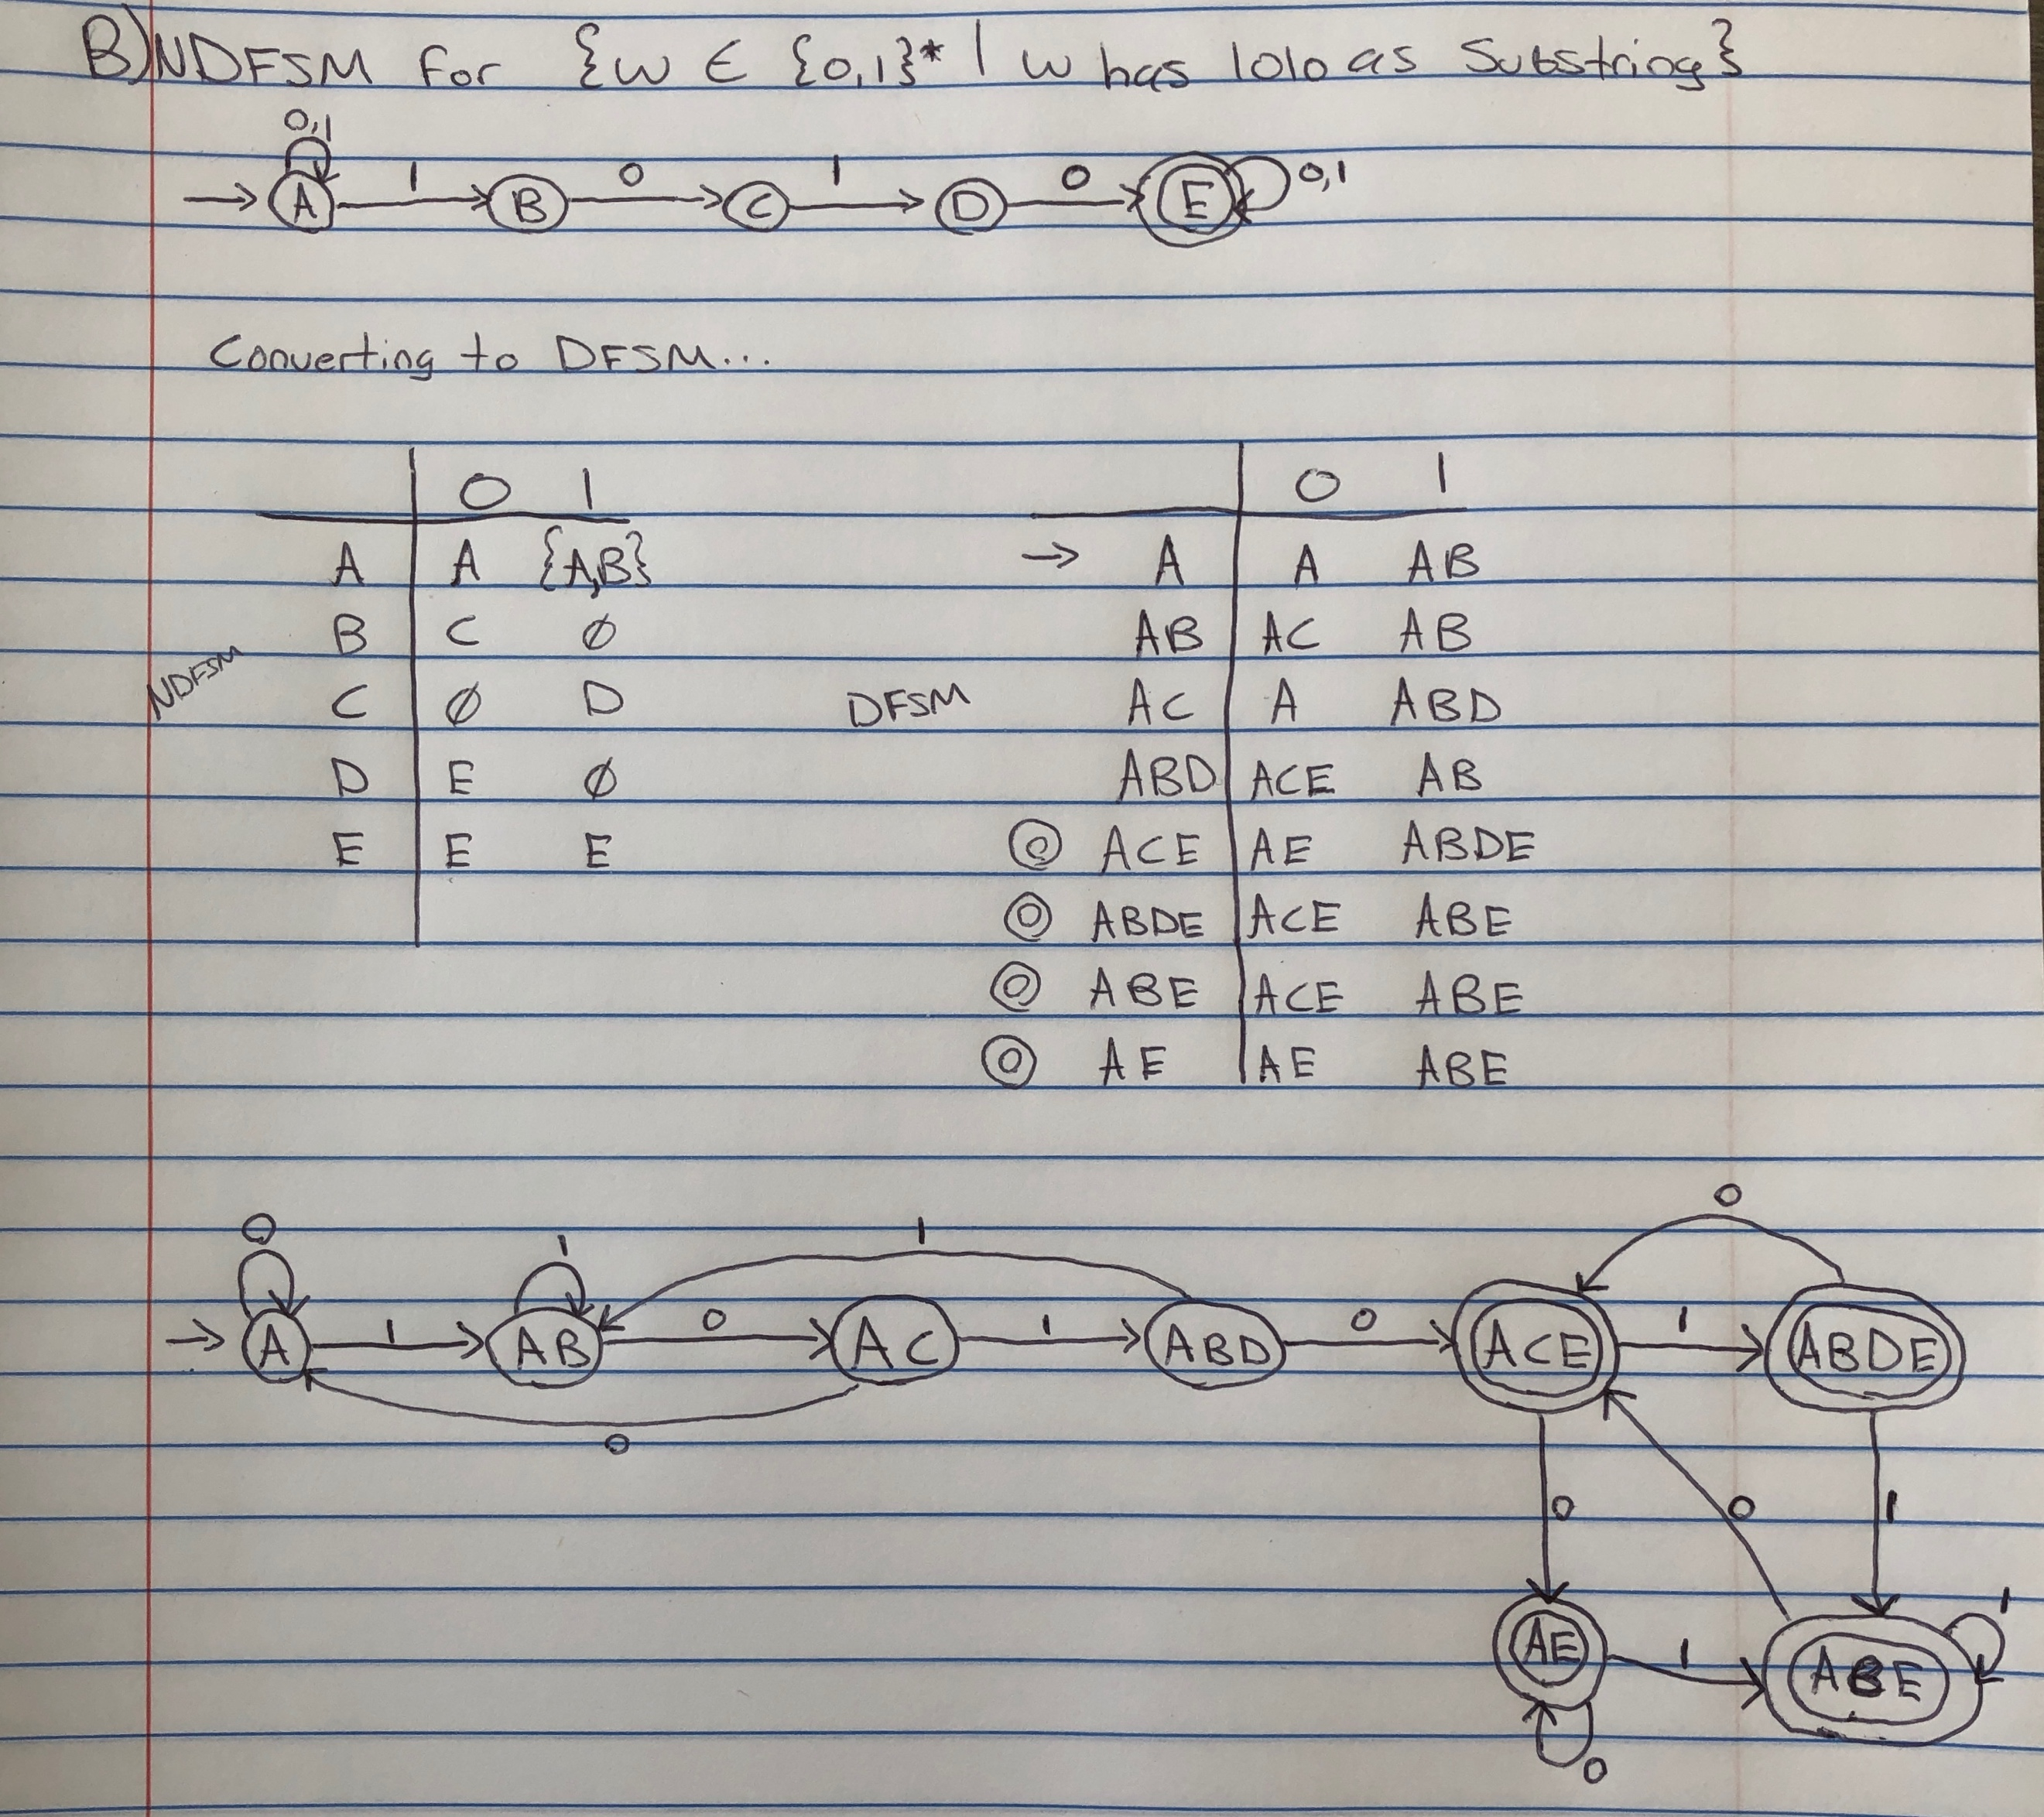 B) NDFSM for {w ∈ {0,1}* | w has 1010 as Substring}
0,1
A 1 B 0 C 1 D 0 E 0,1
Converting to DFSM...
0 1
A A {A,B}
B C ∅
C ∅ D
D E ∅
E E E
NDFSM
0 1
→ A A AB
AB AC AB
AC A ABD
ABD ACE AB
◎ ACE AE ABDE
◎ ABDE ACE ABE
◎ ABE ACE ABE
◎ AE AE ABE
DFSM
0
0 1 1
A 1 AB 0 AC 1 ABD 0 ACE 1 ABDE
0
0 0 1
1
AE 1 ABE
0